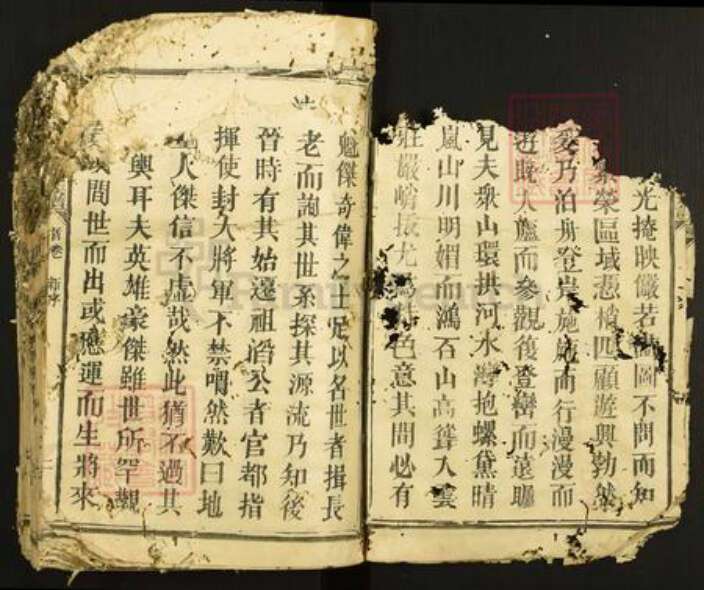 光掩映儼若圖不問而知
榮區域憑欄四顧遊興勃然
爰乃泊舟登岸施施而行漫漫而
遊既大廬而參觀復登巒而遠矚
見夫衆山環拱河水灣抱螺黛晴
嵐山川明媚而鴻石山高聳入雲
莊嚴峭拔尤色意其間必有
魁傑奇偉之士足以名世者揖長
老而詢其世系探其源流乃知後
晉時有其始遷祖滔公者官都指
揮使封大將軍不禁喟然歎曰地
人傑信不虛哉然此猶不過其
輿耳夫英雄豪傑雖世所罕覯
間世而出或應運而生將來
首卷